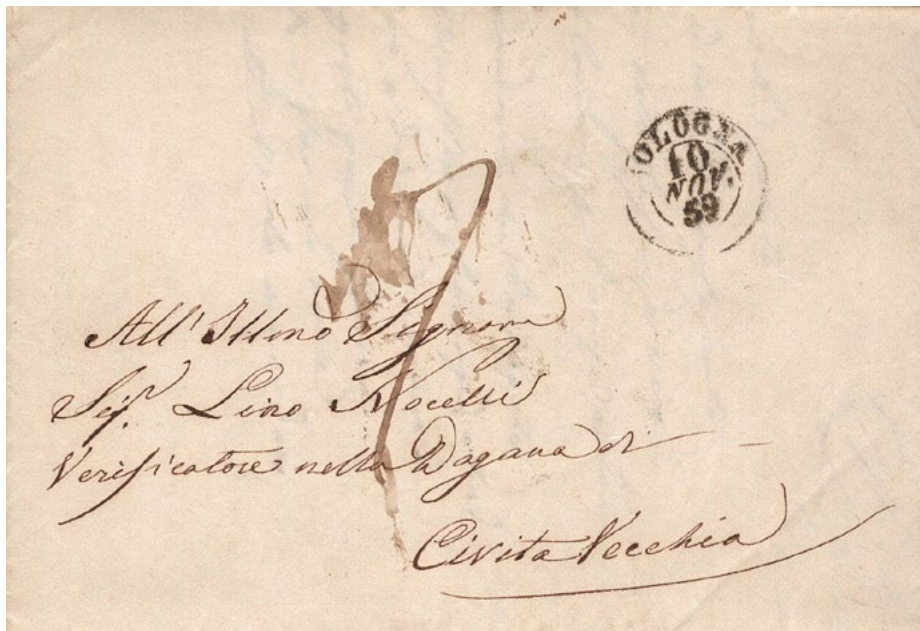 BOLOGNA
10
NOV.
59
All' Illmo Signore
Sigr. Lino Nocelli
Verificatore nella Dogana di
Civita Vecchia